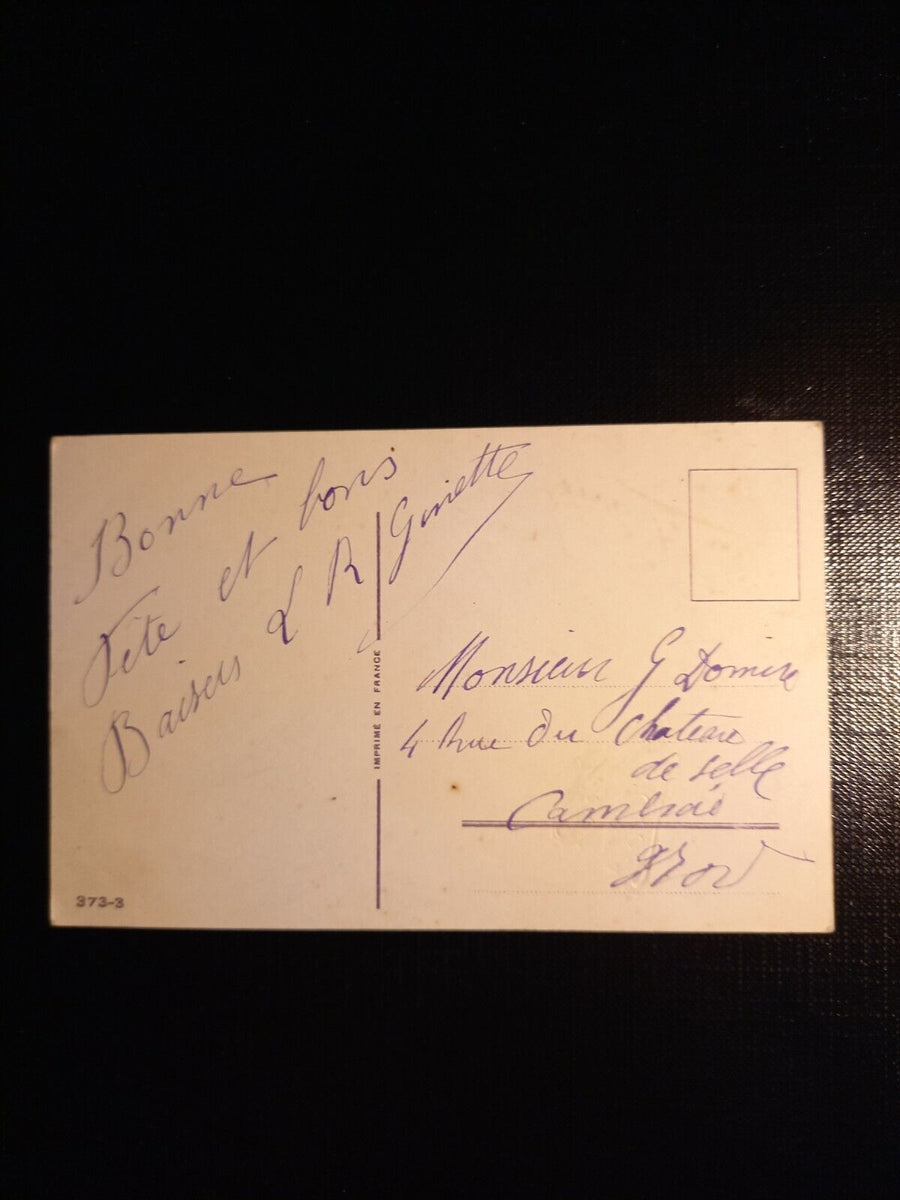 Bonne
Fête et bons
Baisers L R Ginette
IMPRIMÉ EN FRANCE
373-3
Monsieur G
4 Rue du Chateau
de selle
Cambrai
Nord